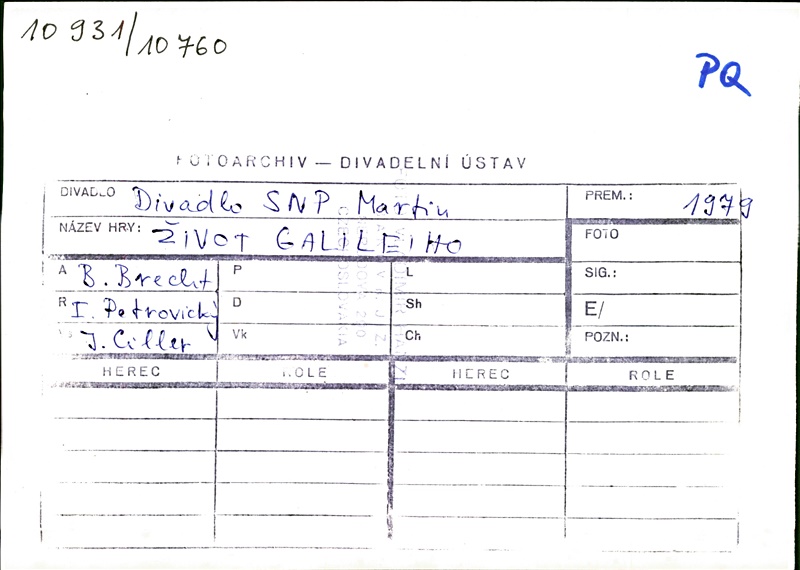 10 931/10 760
PQ
FOTOARCHIV — DIVADELNÍ ÚSTAV
DIVADLO Divadlo SNP Martin PREM.: 1979
NÁZEV HRY: ŽIVOT GALILEIHO FOTO
A B. Brecht P L SIG.:
R I. Petrovický D Sh E/
J. Ciller Vk Ch POZN.:
HEREC ROLE HEREC ROLE